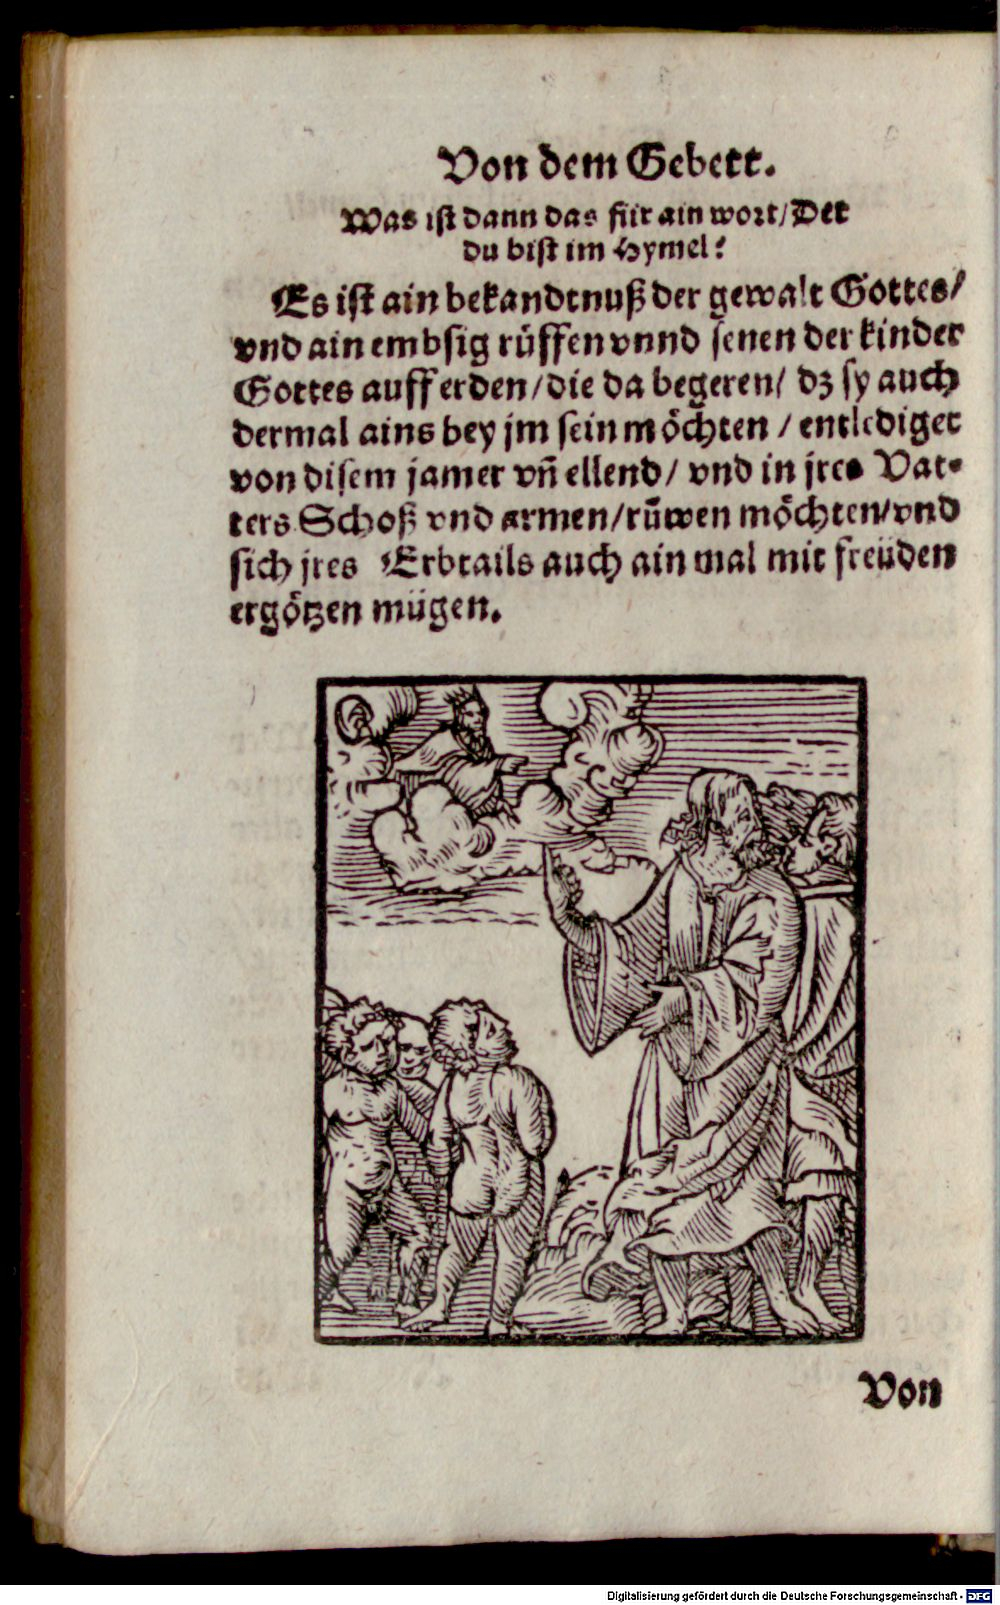 Von dem Gebett.
Was ist dann das für ain wort/Der
du bist im Hymel?
Es ist ain bekandtnuß der gewalt Gottes/
vnd ain embsig rüffen vnnd senen der kinder
Gottes auff erden/die da begeren/ dz sy auch
dermal ains bey jm sein möchten / entlediget
von disem jamer vñ ellend/ vnd in jres Vat-
ters Schoß vnd armen/rüwen möchten/vnd
sich jres Erbtails auch ain mal mit freüden
ergötzen mügen.
Von
Digitalisierung gefördert durch die Deutsche Forschungsgemeinschaft - DFG